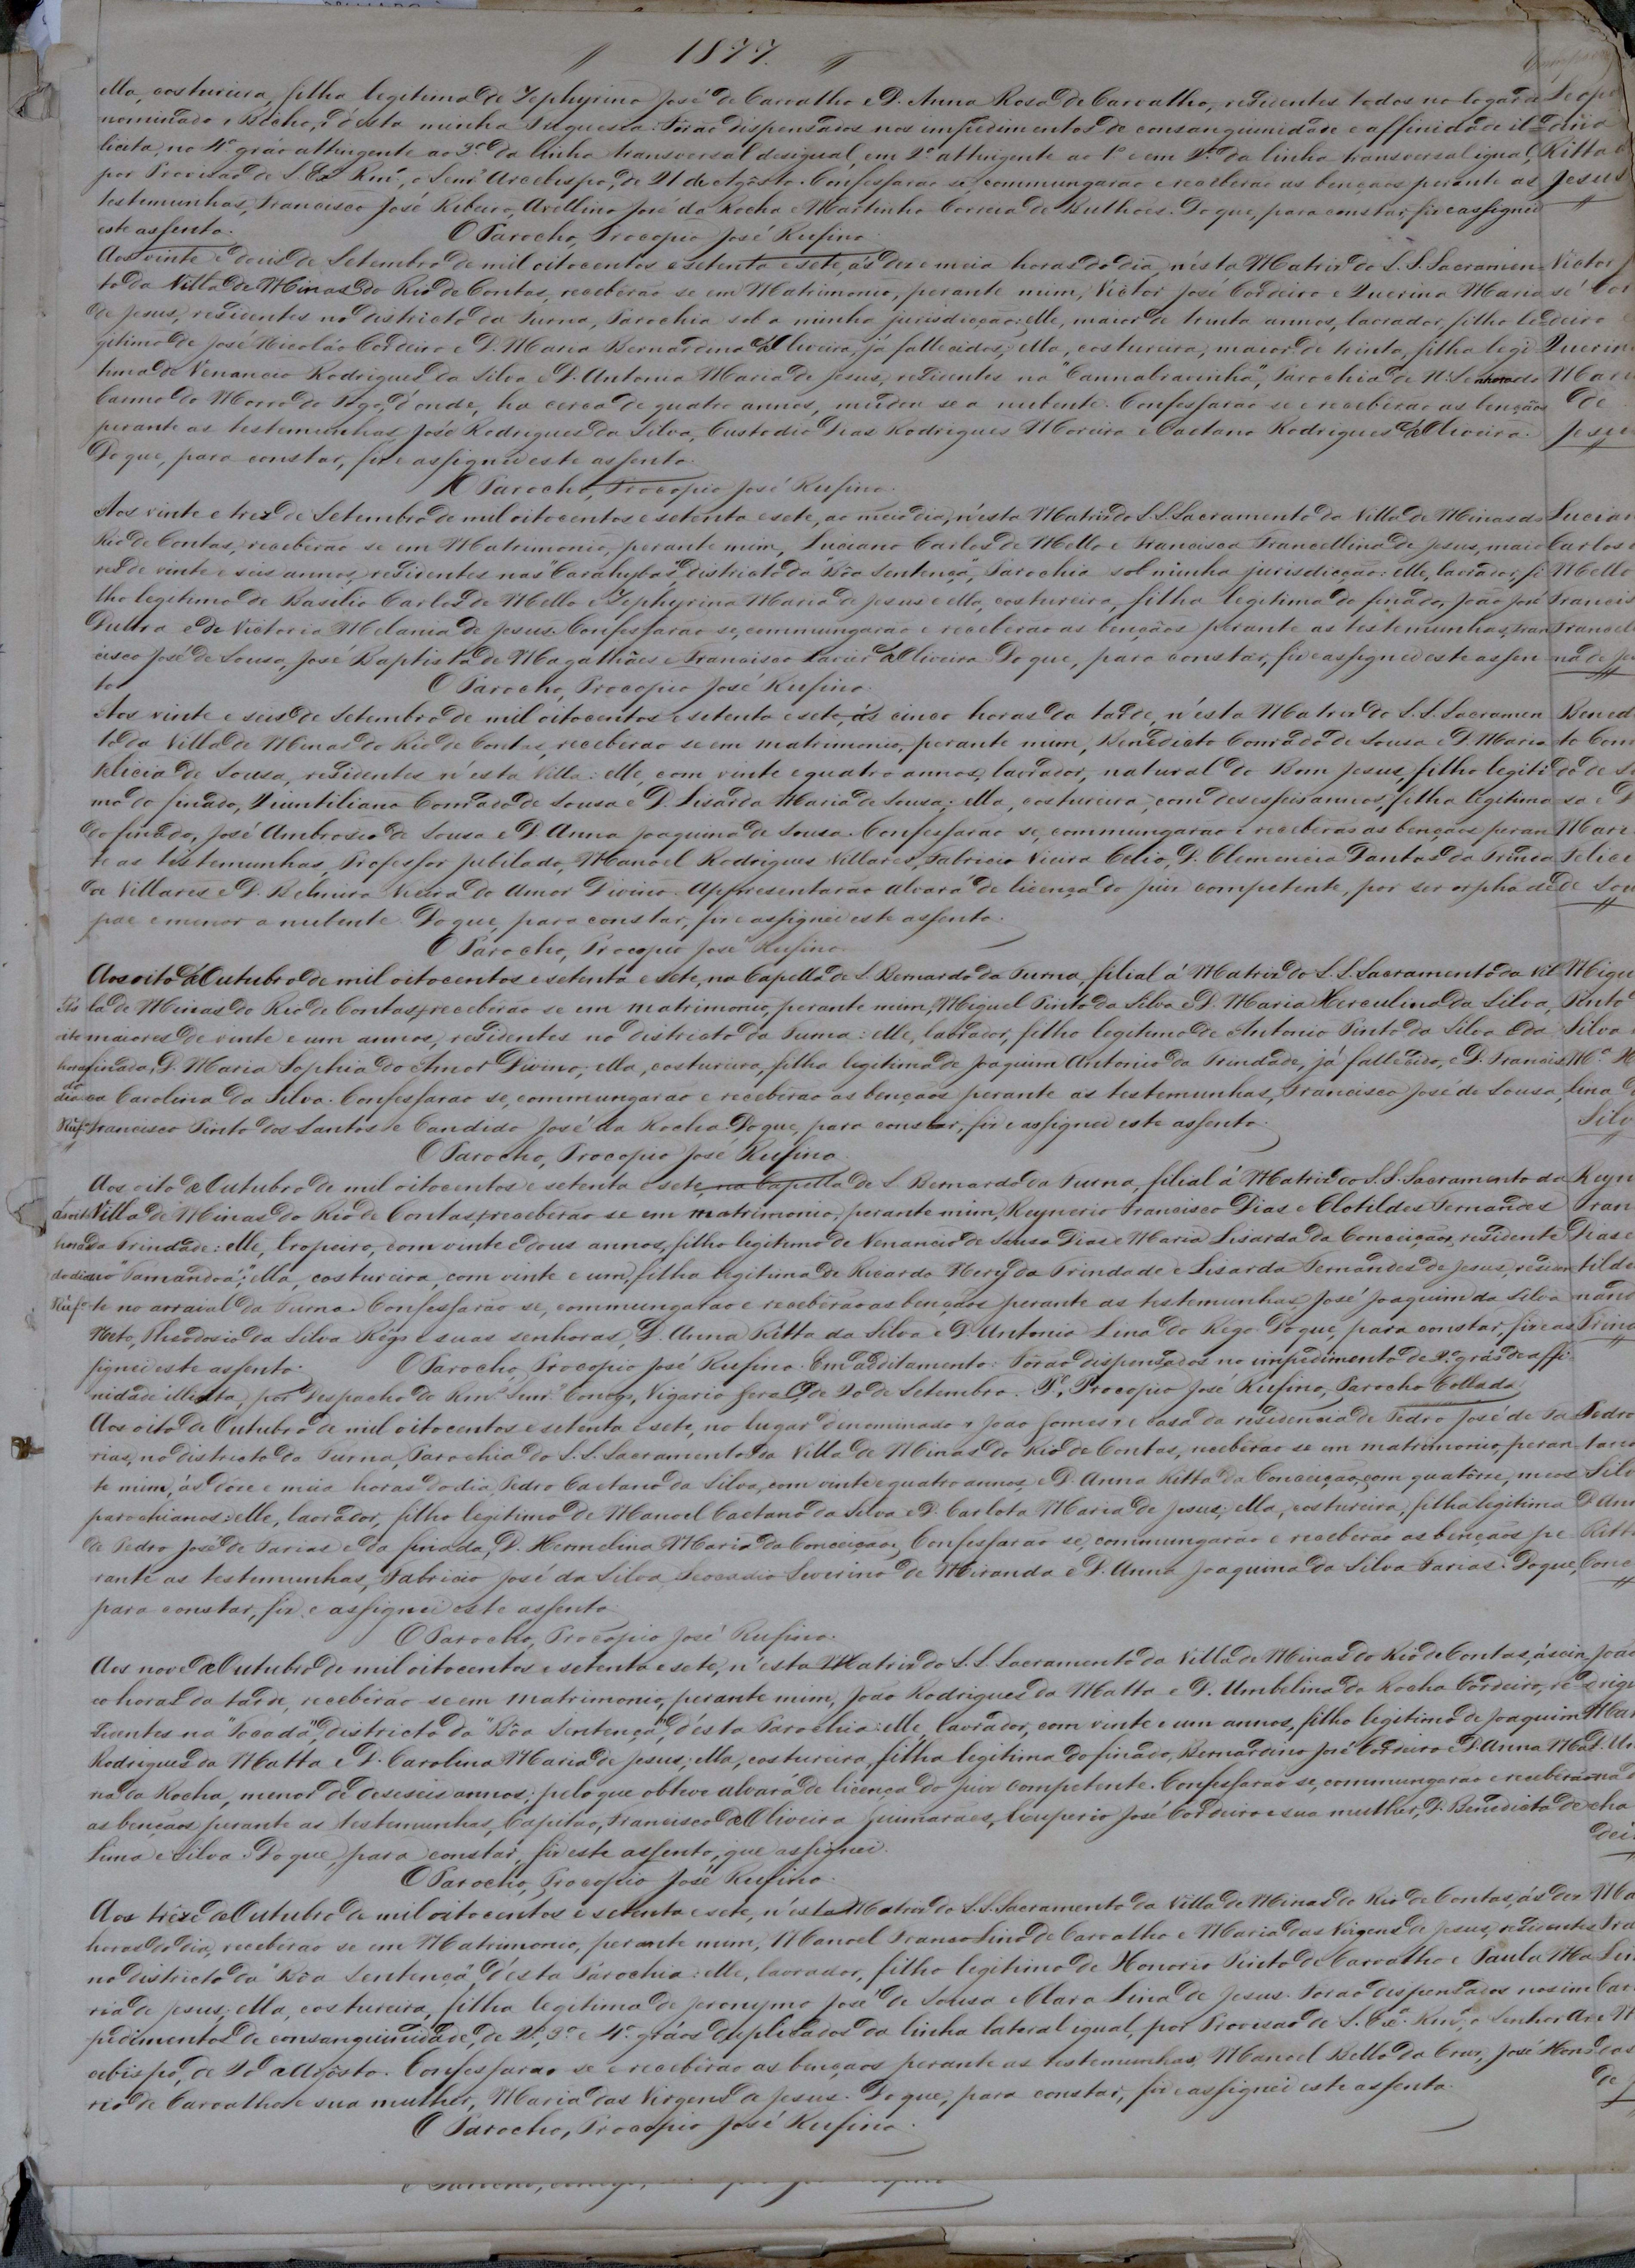 1877.
ella, costureira, filha legitima de Zephyrino José de Carvalho e D. Anna Rosa de Carvalho, residentes todos no logar de
nominado "Bicho", d'esta minha Freguesia. Fôrão dispensados nos impedimentos de consanguinidade e affinidade il
licita, no 4º gráo attingente ao 3º da linha transversal desigual, em 2º attingente ao 1º e em 2º da linha transversal igual,
por Provisão de S. Exª Rmª, o Senr Arcebispo, de 21 de Agôsto. Confessarão se, commungarão e receberão as bençãos perante as
testemunhas, Francisco José Ribeiro, Avellino José da Rocha e Martinho Correia de Bulhões. Do que, para constar, fiz e assignei
este assento.
O Parocho, Procopio José Rufino.
Aos vinte e dous de Setembro de mil oitocentos e setenta e sete, ás dez e meia horas do dia, n'esta Matriz do S. S. Sacramen
to da Villa de Minas do Rio de Contas, receberão se em Matrimonio, perante mim, Victor José Cordeiro e Querina Maria
de Jesus, residentes no districto da Furna, Parochia sob a minha jurisdicção: elle, maior de trinta annos, lavrador, filho le
gitimo de José Nicoláo Cordeiro e D. Maria Bernardina d'Oliveira, já fallecidos; ella, costureira, maior de trinta, filha legi
tima de Venancio Rodrigues da Silva e D. Antonia Maria de Jesus, residentes na "Cannabravinha", Parochia de N. Senhora do
Carmo do Morro do Fogo, d'onde, ha cerca de quatro annos, mudou se a nubente. Confessarão se e receberão as bençãos
perante as testemunhas, José Rodrigues da Silva, Custodio Dias Rodrigues Moreira e Caetano Rodrigues d'Oliveira.
Do que, para constar, fiz e assignei este assento.
O Parocho, Procopio José Rufino.
Aos vinte e trez de Setembro de mil oitocentos e setenta e sete, ao meio dia, n'esta Matriz do S. S. Sacramento da Villa de Minas do
Rio de Contas, receberão se em Matrimonio, perante mim, Luciano Carlos de Mello e Francisca Francellina de Jesus, maio
res de vinte e seis annos, residentes nas "Carahybas", districto da "Bôa Sentença", Parochia sob minha jurisdicção: elle, lavrador, fi
lho legitimo de Basilio Carlos de Mello e Zephyrina Maria de Jesus e ella, costureira, filha legitima do finado, João José
Dutra e de Victoria Melania de Jesus. Confessarão se, commungarão e receberão as bençãos perante as testemunhas, Fran
cisco José de Sousa, José Baptista de Magalhães e Francisco Xavier d'Oliveira. Do que, para constar, fiz e assignei este assen
to.
O Parocho, Procopio José Rufino.
Aos vinte e seis de Setembro de mil oitocentos e setenta e sete, ás cinco horas da tarde, n'esta Matriz do S. S. Sacramen
to da Villa de Minas do Rio de Contas, receberão se em matrimonio, perante mim, Benedicto Conrado de Sousa e D. Maria
Felicia de Sousa, residentes n'esta Villa: elle, com vinte e quatro annos, lavrador, natural do Bom Jesus, filho legiti
mo do finado, Quintiliano Conrado de Sousa e D. Lisarda Maria de Sousa; ella, costureira, com desesseis annos, filha legitima
do finado, José Ambrosio de Sousa e D. Anna Joaquina de Sousa. Confessarão se, commungarão e receberão as bençãos peran
te as testemunhas, Professor jubilado, Manoel Rodrigues Villares, Fabricio Vieira Celio, D. Clemencia Dantas da Trinda
de Villares e D. Belmira Vieira do Amor Divino. Appresentarão alvará de licença do Juiz competente, por ser orphã de
pae e menor a nubente. Do que, para constar, fiz e assignei este assento.
O Parocho, Procopio José Rufino.
Aos oito d'Outubro de mil oitocentos e setenta e sete, na Capella de S. Bernardo da Furna, filial á Matriz do S. S. Sacramento da Vil
la de Minas do Rio de Contas, receberão se em matrimonio, perante mim, Miguel Pinto da Silva e D. Maria Herculina da Silva,
maiores de vinte e um annos, residentes no districto da Furna: elle, lavrador, filho legitimo de Antonio Pinto da Silva e da
finada, D. Maria Sophia do Amor Divino; ella, costureira, filha legitima de Joaquim Antonio da Trindade, já fallecido, e D. Francis
ca Carolina da Silva. Confessarão se, commungarão e receberão as bençãos perante as testemunhas, Francisco José de Sousa,
Francisco Pinto dos Santos e Candido José da Rocha. Do que, para constar, fiz e assignei este assento.
O Parocho, Procopio José Rufino.
Aos oito d'Outubro de mil oitocentos e setenta e sete, na Capella de S. Bernardo da Furna, filial á Matriz do S. S. Sacramento da
Villa de Minas do Rio de Contas, receberão se em matrimonio, perante mim, Reynerio Francisco Dias e Clotildes Fernandes
da Trindade: elle, tropeiro, com vinte e dous annos, filho legitimo de Venancio de Sousa Dias e Maria Lisarda da Conceição, residente
no "Tamandoá"; ella, costureira, com vinte e um, filha legitima de Ricardo Nery da Trindade e Lisarda Fernandes de Jesus, residen
te no arraial da Furna. Confessarão se, commungarão e receberão as bençãos perante as testemunhas, José Joaquim da Silva
Neto, Theodosio da Silva Rêgo e suas senhoras, D. Anna Ritta da Silva e D. Antonia Lina do Rêgo. Do que, para constar, fiz e as
signei este assento. O Parocho, Procopio José Rufino. Em additamento: Fôrão dispensados no impedimento de 2º gráo de affi
nidade illicita, por Despacho do Rmº Senr. Conego, Vigario Geral, de 20 de Setembro. Pe. Procopio José Rufino, Parocho Collado.
Aos oito de Outubro de mil oitocentos e setenta e sete, no lugar denominado "João Gomes", e casa da residencia de Pedro José de Fa
rias, no districto da Furna, Parochia do S. S. Sacramento da Villa de Minas do Rio de Contas, receberão se em matrimonio, peran
te mim, ás doze e meia horas do dia, Pedro Caetano da Silva, com vinte e quatro annos, e D. Anna Ritta da Conceição, com quatorze, meos
parochianos: elle, lavrador, filho legitimo de Manoel Caetano da Silva e D. Carlota Maria de Jesus; ella, costureira, filha legitima
de Pedro José de Farias e da finada, D. Hermelina Maria da Conceição. Confessarão se, commungarão e receberão as bençãos pe
rante as testemunhas, Fabricio José da Silva, Leocadio Severino de Miranda e D. Anna Joaquina da Silva Farias. Do que,
para constar, fiz e assignei este assento.
O Parocho, Procopio José Rufino.
Aos nove d'Outubro de mil oitocentos e setenta e sete, n'esta Matriz do S. S. Sacramento da Villa de Minas do Rio de Contas, ás cin
co horas da tarde, receberão se em matrimonio, perante mim, João Rodrigues da Matta e D. Umbelina da Rocha Cordeiro, re
sidentes na "Tocada", districto da "Bôa Sentença", d'esta Parochia: elle, lavrador, com vinte e um annos, filho legitimo de Joaquim
Rodrigues da Matta e D. Carolina Maria de Jesus; ella, costureira, filha legitima do finado, Bernardino José Cordeiro e D. Anna Ma
ria da Rocha, menor de deseseis annos; pelo que obteve alvará de licença do juiz competente. Confessarão se, commungarão e receberão
as bençãos perante as testemunhas, Capitão, Francisco d'Oliveira Guimarães, Couperio José Cordeiro e sua mulher, D. Benedicta de
Lima e Silva. Do que, para constar, fiz este assento, que assignei.
O Parocho, Procopio José Rufino.
Aos trêze d'Outubro de mil oitocentos e setenta e sete, n'esta Matriz do S. S. Sacramento da Villa de Minas do Rio de Contas, ás dez
horas do dia, receberão se em Matrimonio, perante mim, Manoel Franco Lino de Carvalho e Maria das Virgens de Jesus, residentes
no districto da "Bôa Sentença", d'esta Parochia: elle, lavrador, filho legitimo de Honorio Pinto de Carvalho e Paula Ma
ria de Jesus; ella, costureira, filha legitima de Jeronymo José de Sousa e Clara Lina de Jesus. Fôrão dispensados nos im
pedimentos de consanguinidade, de 2º, 3º e 4º gráos duplicados da linha lateral igual, por Provisão de S. Exª Rmª, o Senhor Ar
cebispo, de 20 d'Agôsto. Confessarão se e receberão as bençãos perante as testemunhas, Manoel Bello da Cruz, José Hono
rio de Carvalho e sua mulher, Maria das Virgens de Jesus. Do que, para constar, fiz e assignei este assento.
O Parocho, Procopio José Rufino.